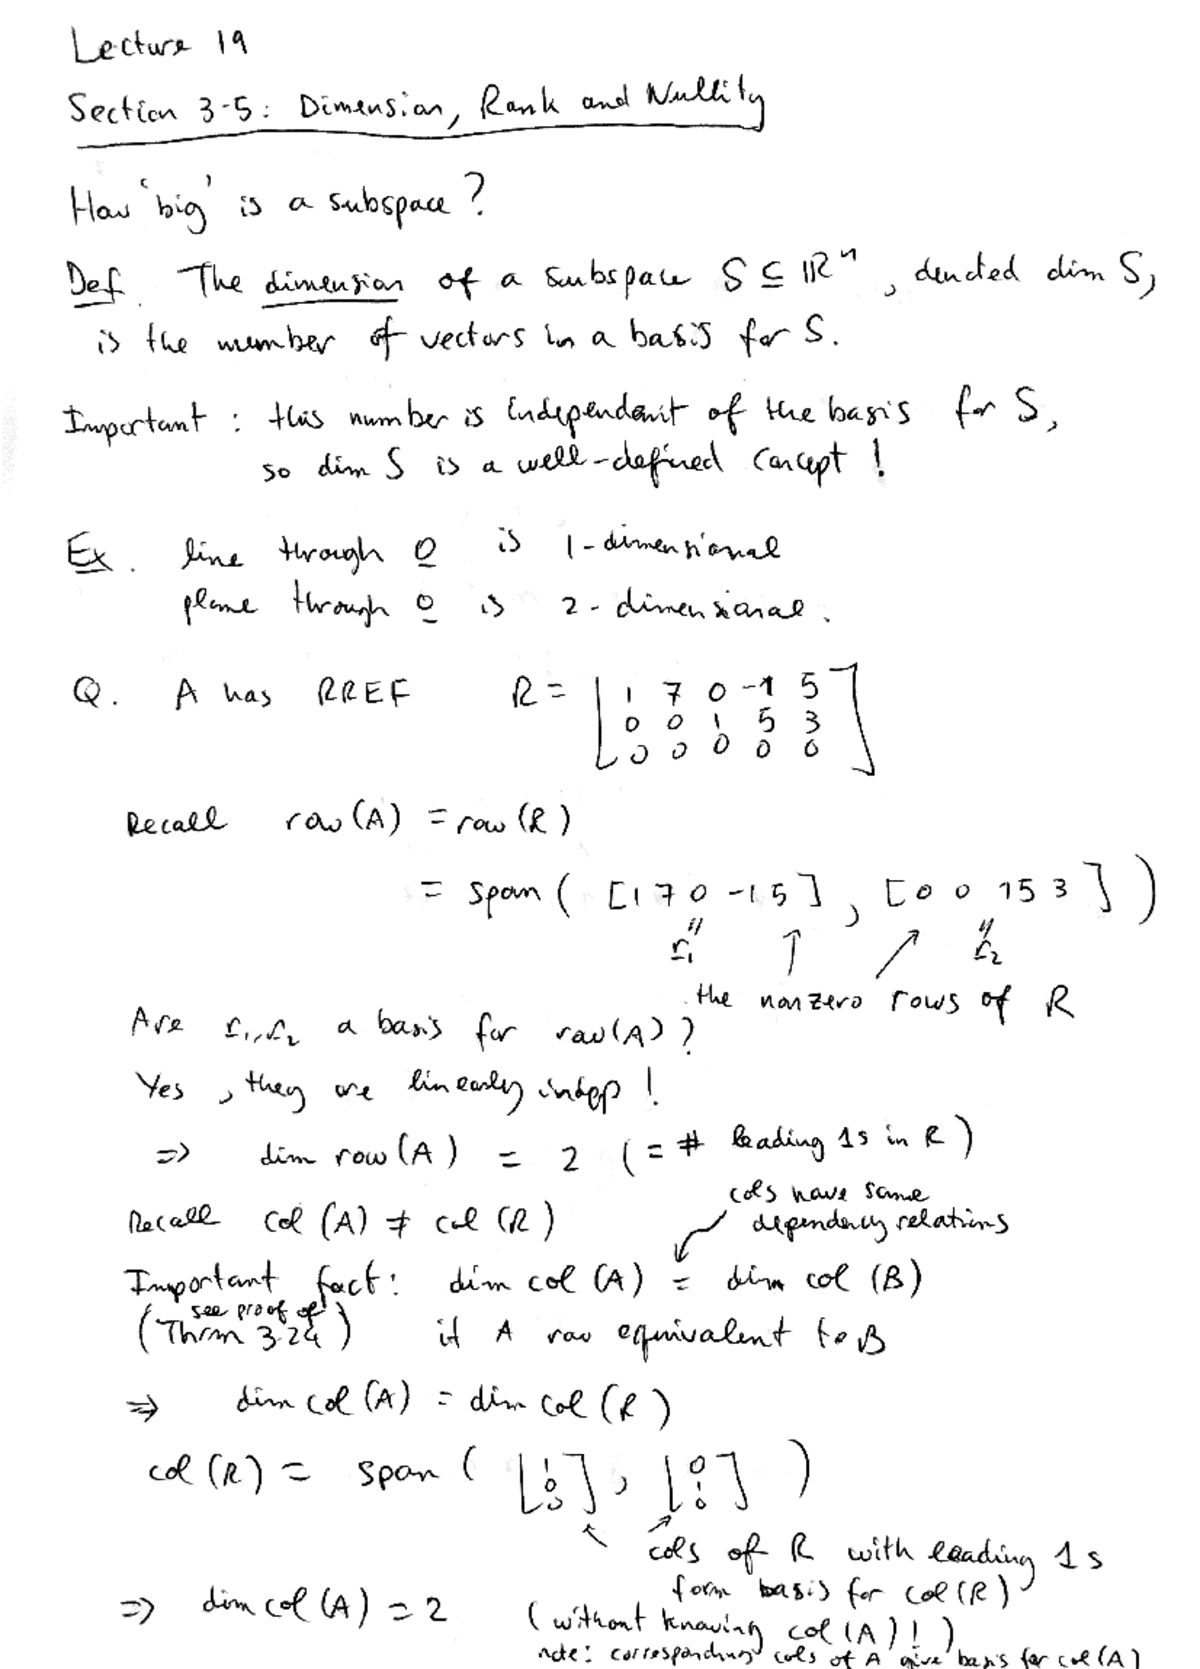 Lecture 19
Section 3-5: Dimension, Rank and Nullity
How 'big' is a subspace?
Def. The dimension of a subspace S ⊆ ℝⁿ, denoted dim S,
is the number of vectors in a basis for S.
Important: this number is independent of the basis for S,
so dim S is a well-defined concept!
Ex. line through 0 is 1-dimensional
plane through 0 is 2-dimensional.
Q. A has RREF R = [1 7 0 -1 5
0 0 1 5 3
0 0 0 0 0]
Recall row(A) = row(R)
= span([1 7 0 -1 5], [0 0 1 5 3])
r₁ r₂
the nonzero rows of R
Are r₁, r₂ a basis for row(A)?
Yes, they are linearly indep!
⇒ dim row(A) = 2 (= # leading 1s in R)
cols have same
Recall col(A) ≠ col(R) dependency relations
Important fact: dim col(A) = dim col(B)
(see proof of
Thrm 3.24) if A row equivalent to B
⇒ dim col(A) = dim col(R)
col(R) = span([1 0 0], [0 1 0])
cols of R with leading 1s
form basis for col(R)
⇒ dim col(A) = 2 (without knowing col(A)!)
note: corresponding cols of A give basis for col(A)